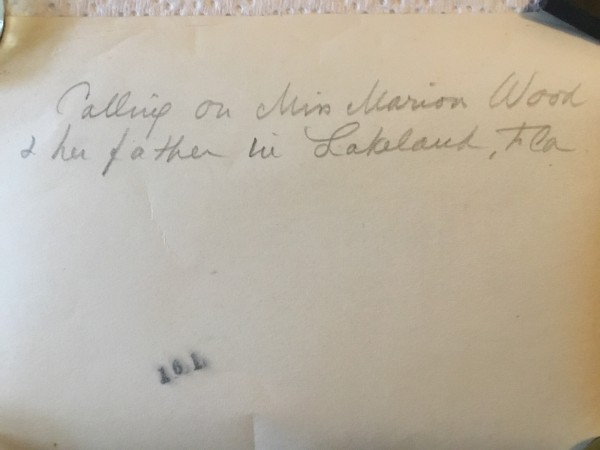 Calling on Miss Marion Wood
& her father in Lakeland, Fla
161